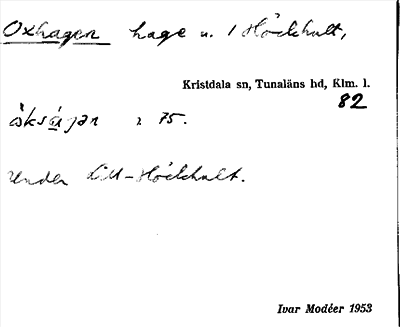 Oxhagen hage u. 1 Höckhult,
Kristdala sn, Tunaläns hd, Klm. l.
82
75.
Under Lill-Höckhult.
Ivar Modéer 1953